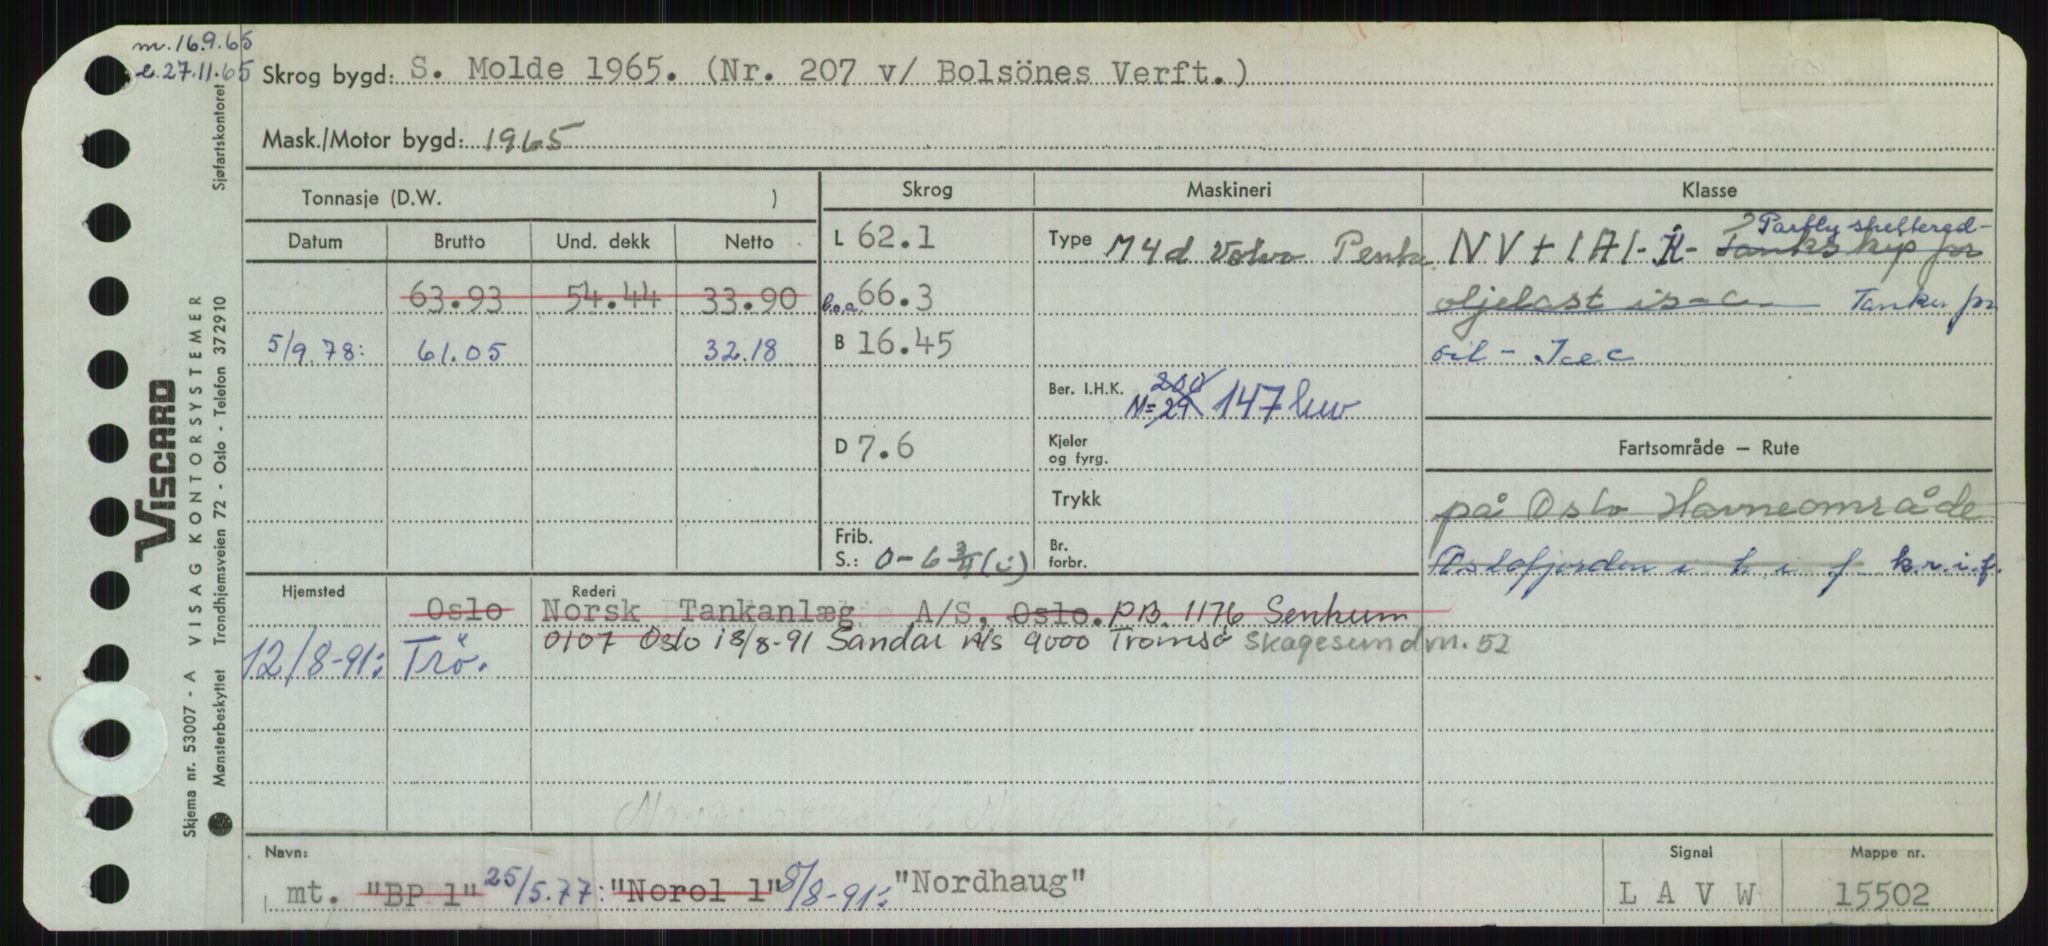 m. 16.9.65
e. 27.11.65
Skrog bygd: S. Molde 1965. (Nr. 207 v/ Bolsönes Verft.)
Mask./Motor bygd: 1965
Tonnasje (D.W. )
Skrog
Maskineri
Klasse
Datum Brutto Und. dekk Netto
L 62.1
Type M4d Volvo Penta
NV + 1A1 - K - Tankskip for
Partly sheltered-
63.93 54.44 33.90
l.o.a. 66.3
oljelast is-c - Tanker for
5/9.78: 61.05 32.18
B 16.45
oil - Ice C
Ber. I.H.K. 200
N= 29 147 kw
D 7.6
Kjeler
og fyrg.
Fartsområde – Rute
Trykk
på Oslo Havneområde
Frib.
S.: 0-6 3/4 (i)
Br.
forbr.
Oslofjorden i h i f k.r.i.f.
Hjemsted
Rederi
Oslo Norsk Tankanlæg A/S, Oslo. P.B. 1176 Sentrum
0107 Oslo 18/8-91 Sandar A/S 9000 Tromsø Skagesundvn. 52
12/8-91: Trö.
Navn:
mt. "BP 1" 25/5.77: "Norol 1" 8/8-91: "Nordhaug"
Signal
L A V W
Mappe nr.
15502
VISCARD
VISAG KONTORSYSTEMER
Skjema nr. 53007 - A
Mønsterbeskyttet
Trondhjemsveien 72 - Oslo - Telefon 372910
Sjøfartskontoret